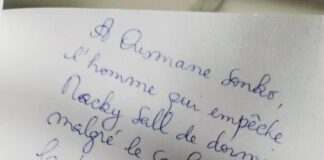 A Ousmane Sonko,
l'homme qui empêche
Macky Sall de dormi
malgré le